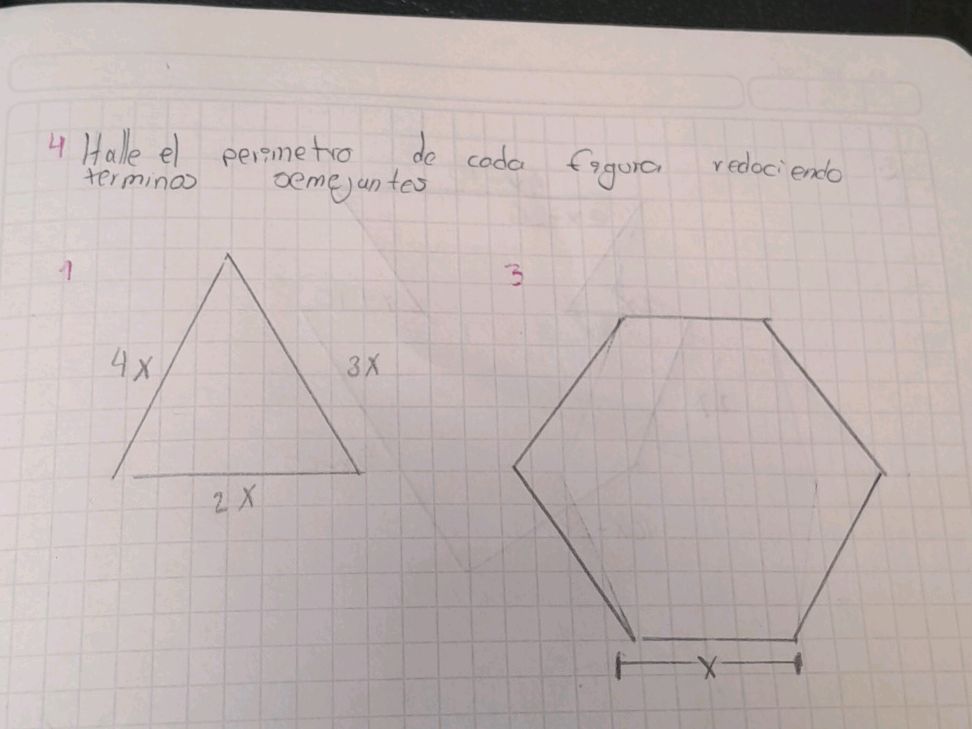 4 Halle el perimetro de cada figura redociendo
terminos semejantes
1
3
4x
3x
2x
x